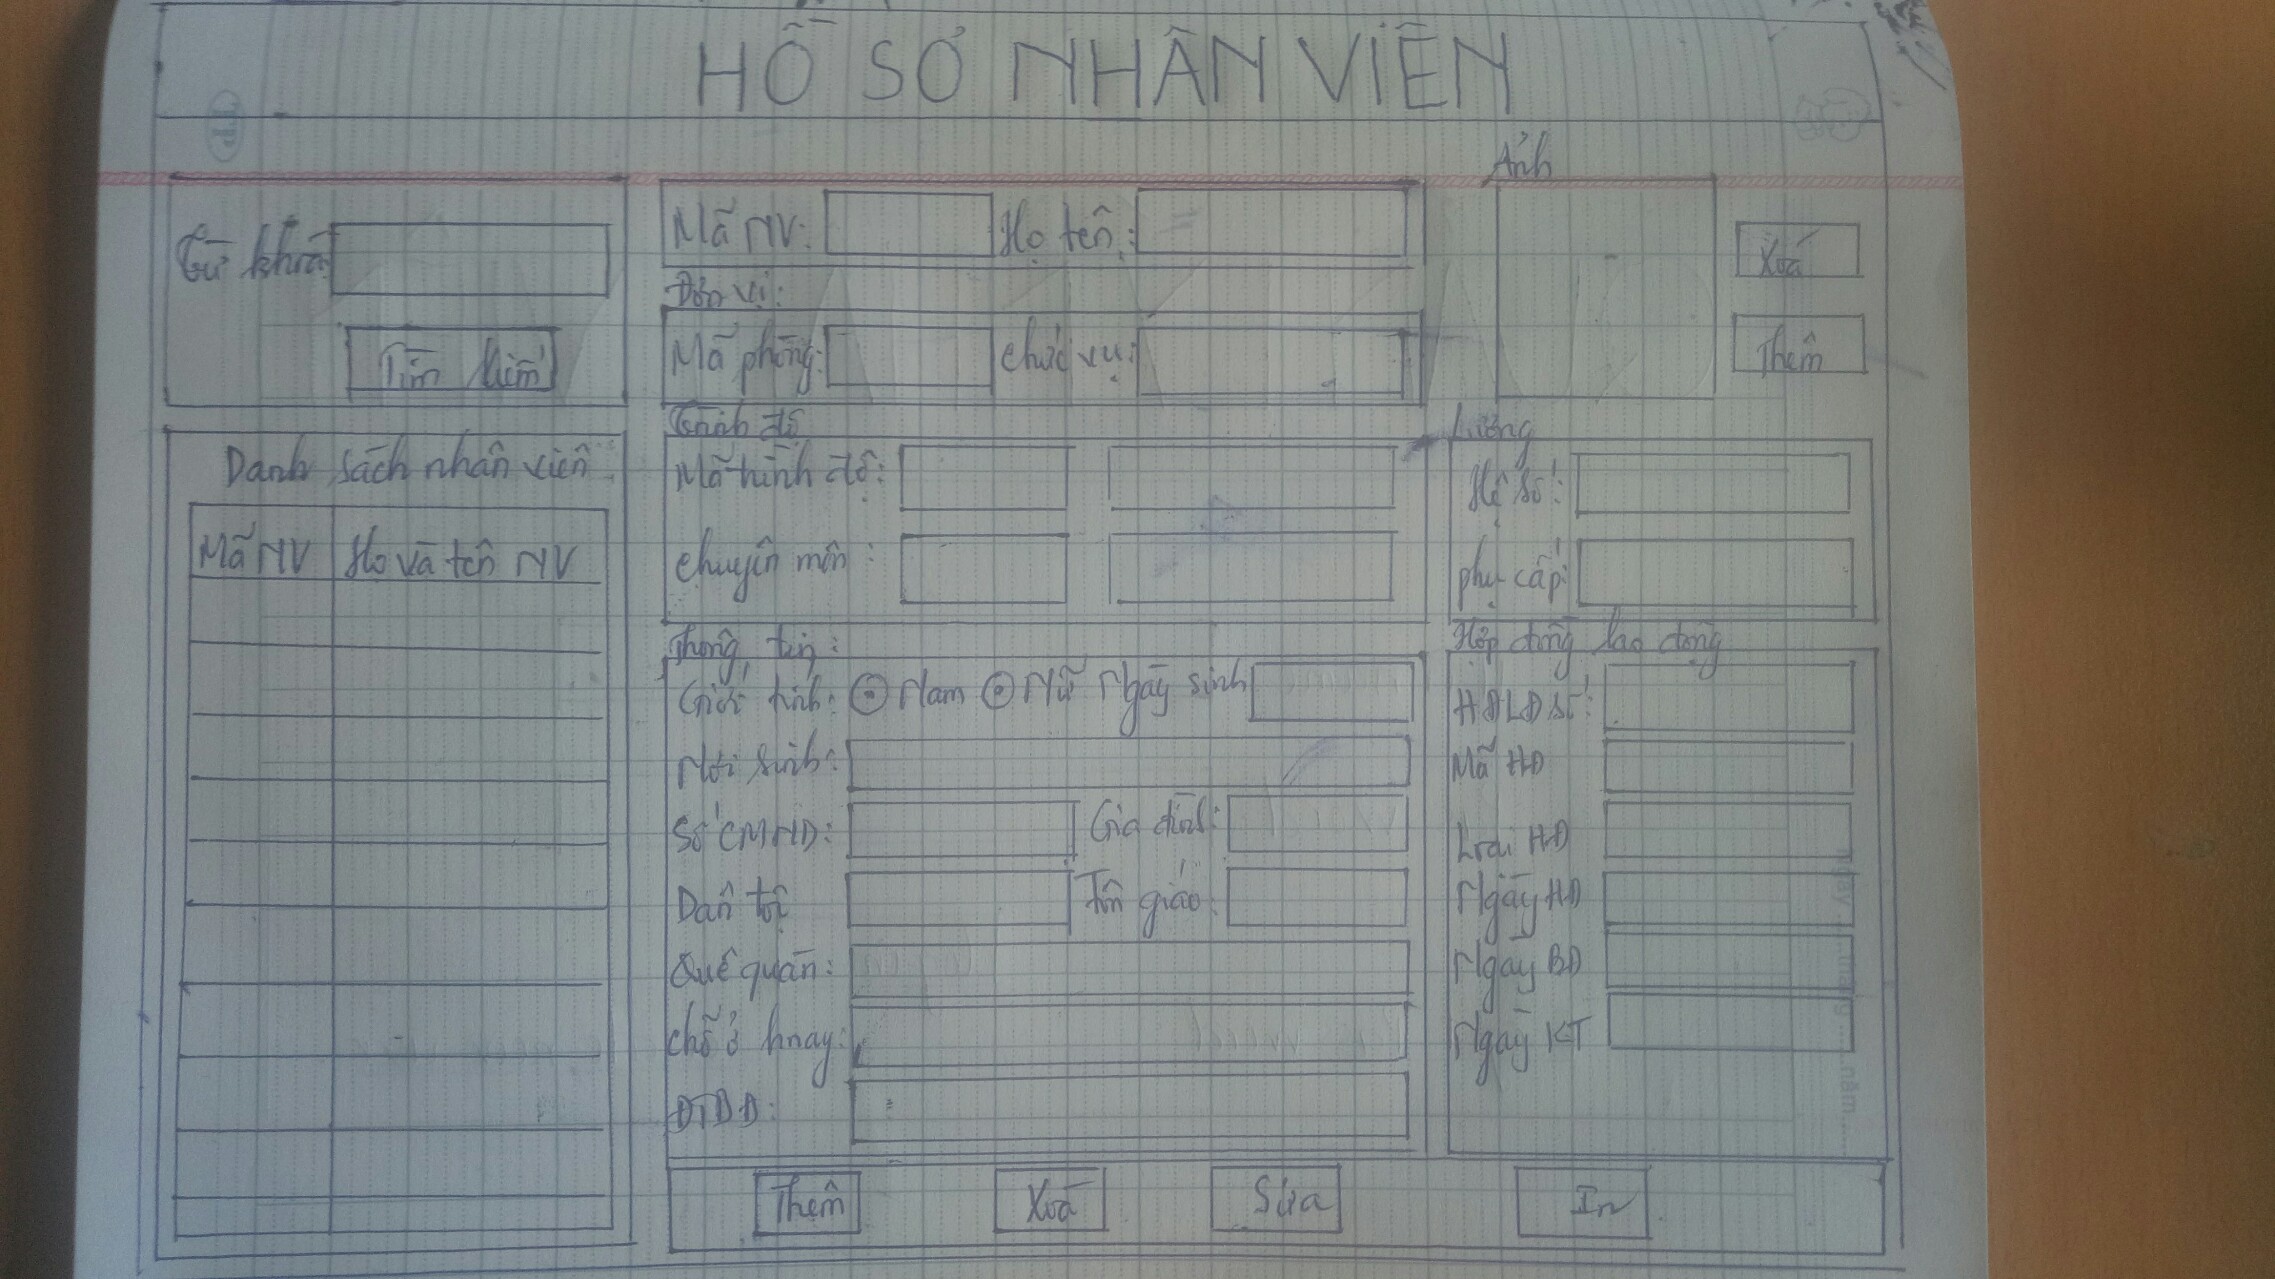 HỒ SƠ NHÂN VIÊN
Từ khoá:
Tìm kiếm
Danh sách nhân viên
Mã NV Họ và tên NV
Mã NV: Họ tên:
Đơn vị:
Mã phòng: chức vụ:
Trình độ
Mã trình độ:
chuyên môn:
Thông tin:
Giới tính: Nam Nữ Ngày sinh
Nơi sinh:
Số CMND: Gia đình:
Dân tộc Tôn giáo:
Quê quán:
chỗ ở hnay:
ĐTDĐ:
Ảnh
Xoá
Thêm
Lương
Hệ số:
phụ cấp:
Hợp đồng lao động
HĐLĐ số:
Mã HĐ
Loại HĐ
Ngày HĐ
Ngày BĐ
Ngày KT
Thêm Xoá Sửa In
TP